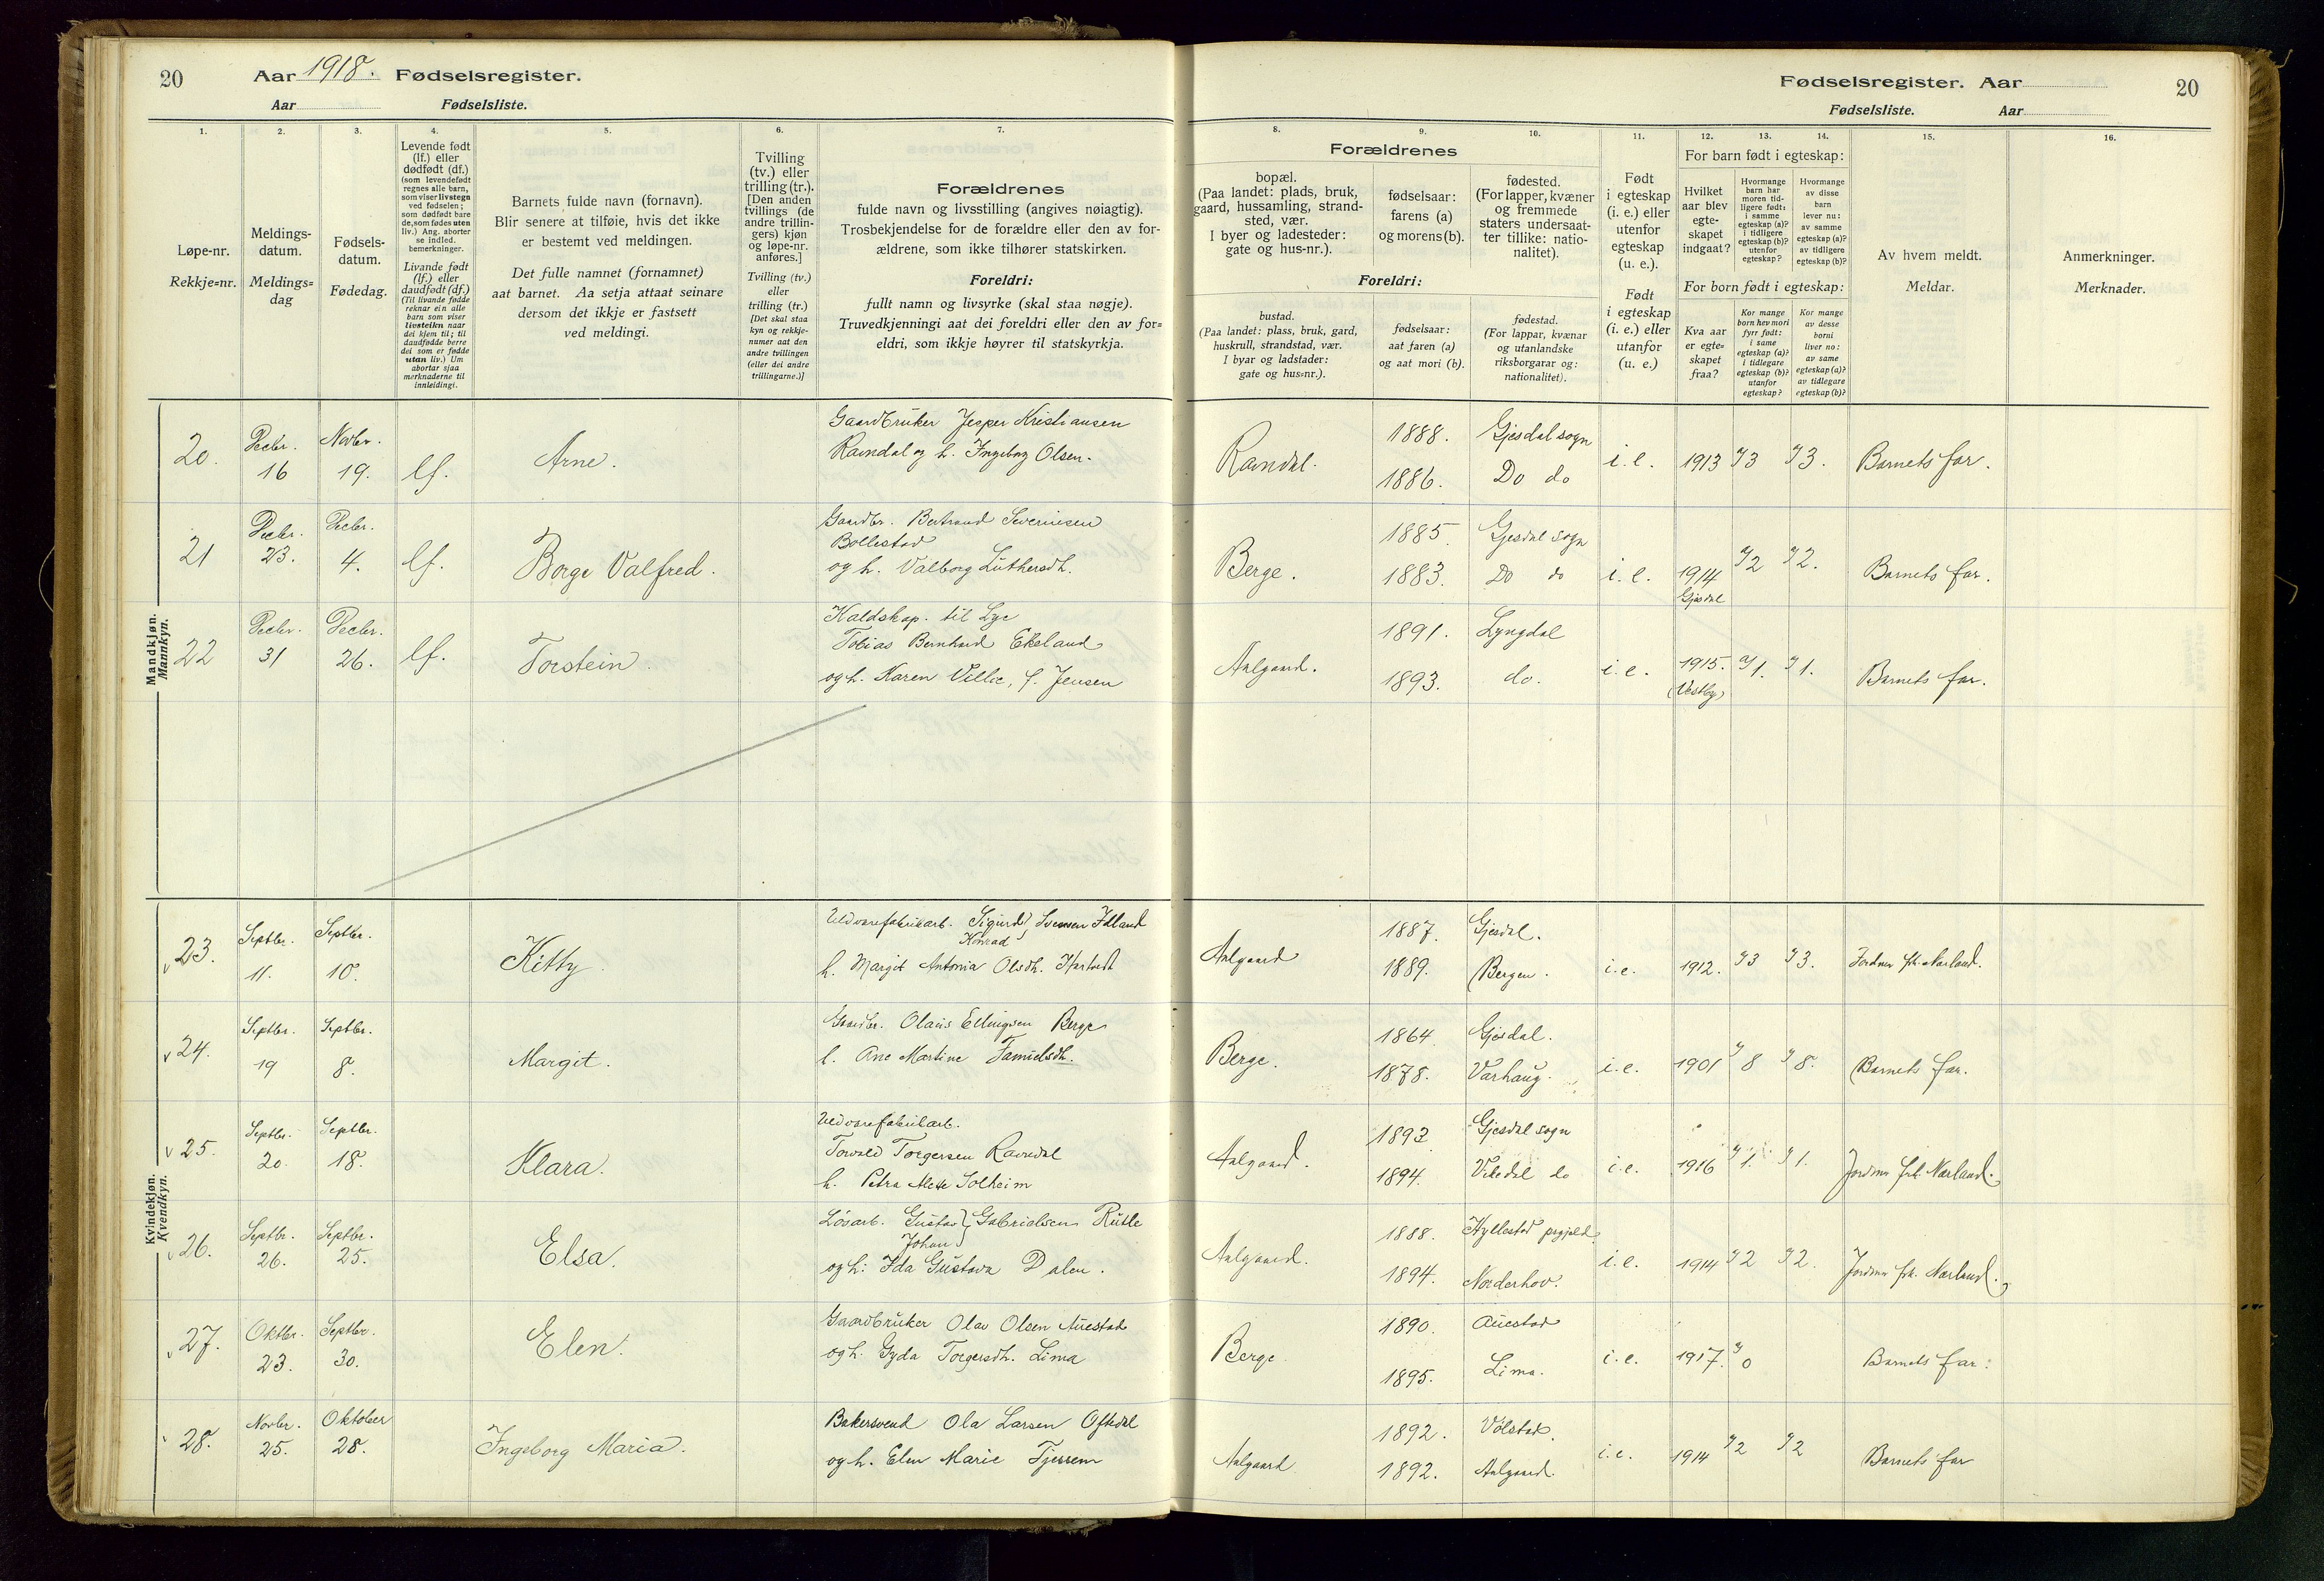 20
Aar 1918. Fødselsregister.
Aar Fødselsliste.
Fødselsregister. Aar
20
Fødselsliste. Aar
1.
2.
3.
4.
5.
6.
7.
8.
9.
10.
11.
12.
13.
14.
15.
16.
Løpe-nr.
Rekkje=nr.
Meldings-
datum.
Meldings=
dag
Fødsels-
datum.
Fødedag.
Levende født
(lf.) eller
dødfødt (df.)
(som levendefødt
regnes alle barn,
som viser livstegn
ved fødselen;
som dødfødt bare
de, som fødes uten
liv.) Ang. aborter
se indled.
bemerkninger.
Livande født
(lf.) eller
daudfødt (df.)
(Til livande fødde
reknar ein alle
barn som viser
livsteikn naar
dei kjem til; til
daudfødde berre
dei som er fødde
utan liv.) Um
abortar sjaa
merknaderne til
innleidingi.
Barnets fulde navn (fornavn).
Blir senere at tilføie, hvis det ikke
er bestemt ved meldingen.
Det fulle namnet (fornamnet)
aat barnet. Aa setja attaat seinare
dersom det ikkje er fastsett
ved meldingi.
Tvilling
(tv.) eller
trilling (tr.).
[Den anden
tvillings (de
andre trillin-
gers) kjøn
og løpe-nr.
anføres.]
Tvilling (tv.)
eller
trilling (tr.)
[Det skal staa
kyn og rekkje-
numer aat den
andre tvillingen
(eller dei andre
trillingarne.)]
Forældrenes
fulde navn og livsstilling (angives nøiagtig).
Trosbekjendelse for de forældre eller den av for-
ældrene, som ikke tilhører statskirken.
Foreldri:
fullt namn og livsyrke (skal staa nøgje).
Truvedkjenningi aat dei foreldri eller den av for=
eldri, som ikkje høyrer til statskyrkja.
Forældrenes
bopæl.
(Paa landet: plads, bruk,
gaard, hussamling, strand-
sted, vær.
I byer og ladesteder:
gate og hus-nr.).
fødselsaar:
farens (a)
og morens (b).
fødested.
(For lapper, kvæner
og fremmede
staters undersaat-
ter tillike: natio-
nalitet).
Foreldri:
bustad.
(Paa landet: plass, bruk, gard,
huskrull, strandstad, vær.
I byar og ladstader:
gate og hus=nr.).
fødselsaar:
aat faren (a)
og aat mori (b).
fødestad.
(For lappar, kvænar
og utanlandske
riksborgarar og:
nationalitet).
Født
i egteskap
(i. e.) eller
utenfor
egteskap
(u. e.).
Født
i egteskap
(i. e.) eller
utanfor
(u. e.)
For barn født i egteskap:
Hvilket
aar blev
egte-
skapet
indgaat?
Hvormange
barn har
moren tid-
ligere født:
i samme
egteskap (a)?
i tidligere
egteskap (b)?
utenfor
egteskap?
Hvormange
av disse
barn
lever nu:
av samme
egteskap (a)?
av tidligere
egteskap (b)?
For born født i egteskap:
Kva aar
er egte=
skapet
fraa?
Kor mange
born hev mori
fyrr født:
i same
egteskap (a)?
i tidlegare
egteskap (b)?
utanfor
egteskap?
Kor mange
av desse
borni
liver no:
av same
egteskap (a)?
av tidlegare
egteskap (b)?
Av hvem meldt.
Meldar.
Anmerkninger.
Merknader.
Mandkjøn.
Mannkyn.
20. Decbr. 16 Novbr. 19. lf. Arne.
Gaardbruker Jesper Kristiansen
Ravndal og h. Ingeborg Olsen.
Ravndal. 1888. Gjesdal sogn
1886. Do do
i.e. 1913 3 3. Barnets far.
21 Decbr. 23. Decbr. 4. lf. Borge Valfred.
Gaardbr. Bertrand Severinsen
Bollestad
og h. Valborg Luthersdh.
Berge. 1885 Gjesdal sogn
1883. Do do
i.e. 1914 2 2. Barnets far.
Gjesdal
22 Decbr. 31 Decbr. 26. lf. Torstein.
Kaldskap. til Lye
Tobias Bernhard Ekeland
og h. Karen Villie, f. Jensen
Aalgaard. 1891. Lyngdal
1893. do.
i.e. 1915. 1. 1. Barnets far.
(Vestby)
Kvindekjøn.
Kvendkyn.
23. Septbr. 11. Septbr. 10. Kitty.
Uldvarefabrikarb. Sigurd Svensen Idland
Konrad
h. Margit Antonia Olsdh.
Aalgaard 1887. Gjesdal.
1889. Bergen.
i.e. 1912. 3 3. Jordmor frk. Narland.
24. Septbr. 19 Septbr. 8. Margit.
Gaardbr. Olaus Ellingsen Berge
h. Ane Martine
Berge. 1864 Gjesdal.
1878. Varhaug.
i.e. 1901 8 8. Barnets far.
25. Septbr. 20. Septbr. 18. Klara.
Uldvarefabrikarb.
Torvald Torgersen Ravndal
h. Petra Mette Solheim
Aalgaard. 1893 Gjesdal sogn
1894. Vikedal do
i.e. 1916 1. 1. Jordmor frk. Narland.
26. Septbr. 26. Septbr. 25. Elsa.
Løsarb. Gustav Gabrielsen Rutle
Johan
og h: Ida Gustava Dalen.
Aalgaard. 1888. Hyllestad prgjeld.
1894. Norderhov.
i.e. 1914 2 2. Jordmor frk. Narland.
27. Oktbr. 23. Septbr. 30. Elen.
Gaardbruker Olav Olsen Auestad
og h: Gyda Torgersdh. Lima
Berge. 1890. Auestad
1895. Lima.
i.e. 1917. 0 Barnets far.
28. Novbr. 25. Oktober 28. Ingeborg Maria.
Bakersvend Ola Larsen Oftedal
og h. Elen Marie Tjessem
Aalgaard 1892. Volstad.
1892. Aalgaard.
i.e. 1914 2 2 Barnets far